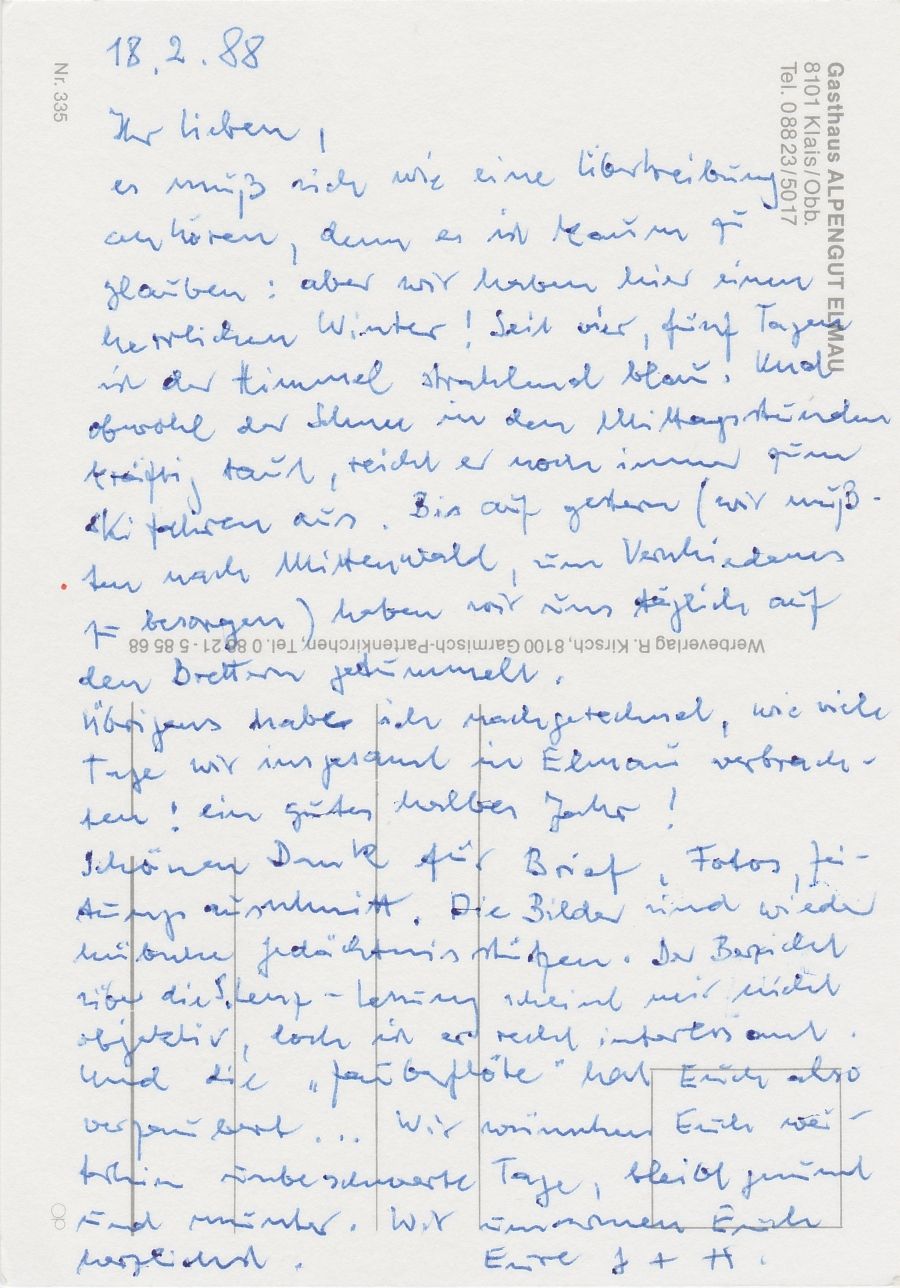 18.2.88
Ihr lieben,
es muß sich wie eine Übertreibung
anhören, denn es ist kaum zu
glauben: aber wir haben hier einen
herrlichen Winter! Seit vier, fünf Tagen
ist der Himmel strahlend blau. Und
obwohl der Schnee in den Mittagsstunden
kräftig taut, reicht er noch immer zum
Skifahren aus. Bis auf gestern (wir muß-
ten nach Mittenwald, um Verschiedenes
zu besorgen) haben wir uns täglich auf
den Brettern getummelt.
Übrigens habe ich nachgerechnet, wie viele
Tage wir insgesamt in Elmau verbrach-
ten: ein gutes halbes Jahr!
Schönen Dank für Brief, Fotos, Zei-
tungsausschnitt. Die Bilder sind wieder
hübsche Gedächtnisstützen. Der Bericht
über die Lesung scheint mir nicht
objektiv, doch ist er recht interessant.
Und die „Zauberflöte" hat Euch also
verzaubert... Wir wünschen Euch wei-
terhin unbeschwerte Tage, bleibt gesund
und munter. Wir umarmen Euch
herzlichst. Eure J + H.
Gasthaus ALPENGUT ELMAU
8101 Klais/Obb.
Tel. 08823/5017
Nr. 335
Werbeverlag R. Kirsch, 8100 Garmisch-Partenkirchen, Tel. 0 88 21 - 5 85 68